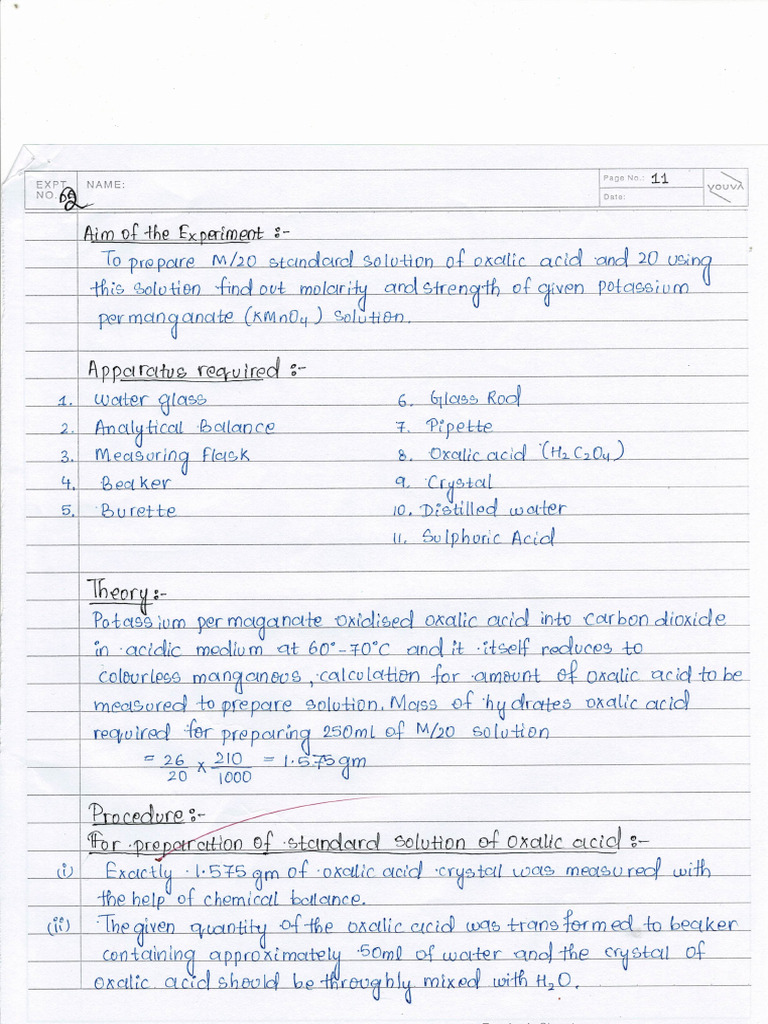 EXPT. NO. 02 NAME: Page No.: 11
Date:
YOUVA
Aim of the Experiment :-
To prepare M/20 standard solution of oxalic acid and 20 using
this solution find out molarity and strength of given potassium
permanganate (KMnO4) solution.
Apparatus required :-
1. Water glass
2. Analytical Balance
3. Measuring flask
4. Beaker
5. Burette
6. Glass Rod
7. Pipette
8. Oxalic acid (H2C2O4)
9. Crystal
10. Distilled water
11. Sulphuric Acid
Theory:-
Potassium permaganate oxidised oxalic acid into carbon dioxide
in acidic medium at 60°-70°C and it itself reduces to
colourless manganous, calculation for amount of oxalic acid to be
measured to prepare solution. Mass of hydrates oxalic acid
required for preparing 250ml of M/20 solution
= 26/20 x 210/1000 = 1.575gm
Procedure:-
For preparation of standard solution of oxalic acid :-
(i) Exactly 1.575 gm of oxalic acid crystal was measured with
the help of chemical balance.
(ii) The given quantity of the oxalic acid was transformed to beaker
containing approximately 50ml of water and the crystal of
oxalic acid should be throughly mixed with H2O.